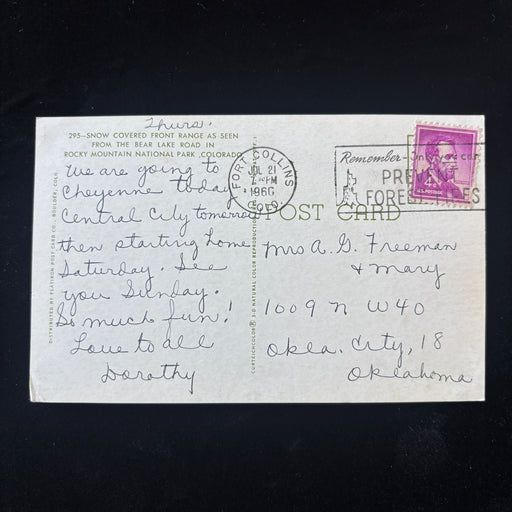 Thurs.
295—SNOW COVERED FRONT RANGE AS SEEN
FROM THE BEAR LAKE ROAD IN
ROCKY MOUNTAIN NATIONAL PARK, COLORADO
We are going to
Cheyenne today
Central City tomorrow
then starting home
Saturday. See
you Sunday.
So much fun!
Love to all
Dorothy
DISTRIBUTED BY FLATIRON POST CARD CO., BOULDER, COLO.
CURTEICHCOLOR® 3-D NATURAL COLOR REPRODUCTION
FORT COLLINS
JUL 21
PM
1966
COLO.
Remember—Only you can
PREVENT
FOREST FIRES
4¢
U.S. POSTAGE
POST CARD
Mrs A. G. Freeman
& Mary
1009 N W 40
Okla. City, 18
Oklahoma